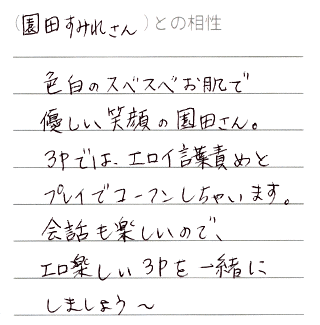 (園田すみれさん)との相性
色白のスベスベお肌で
優しい笑顔の園田さん。
3Pでは、エロイ言葉責めと
プレイでコーフンしちゃいます。
会話も楽しいので、
エロ楽しい3Pを一緒に
しましょう〜